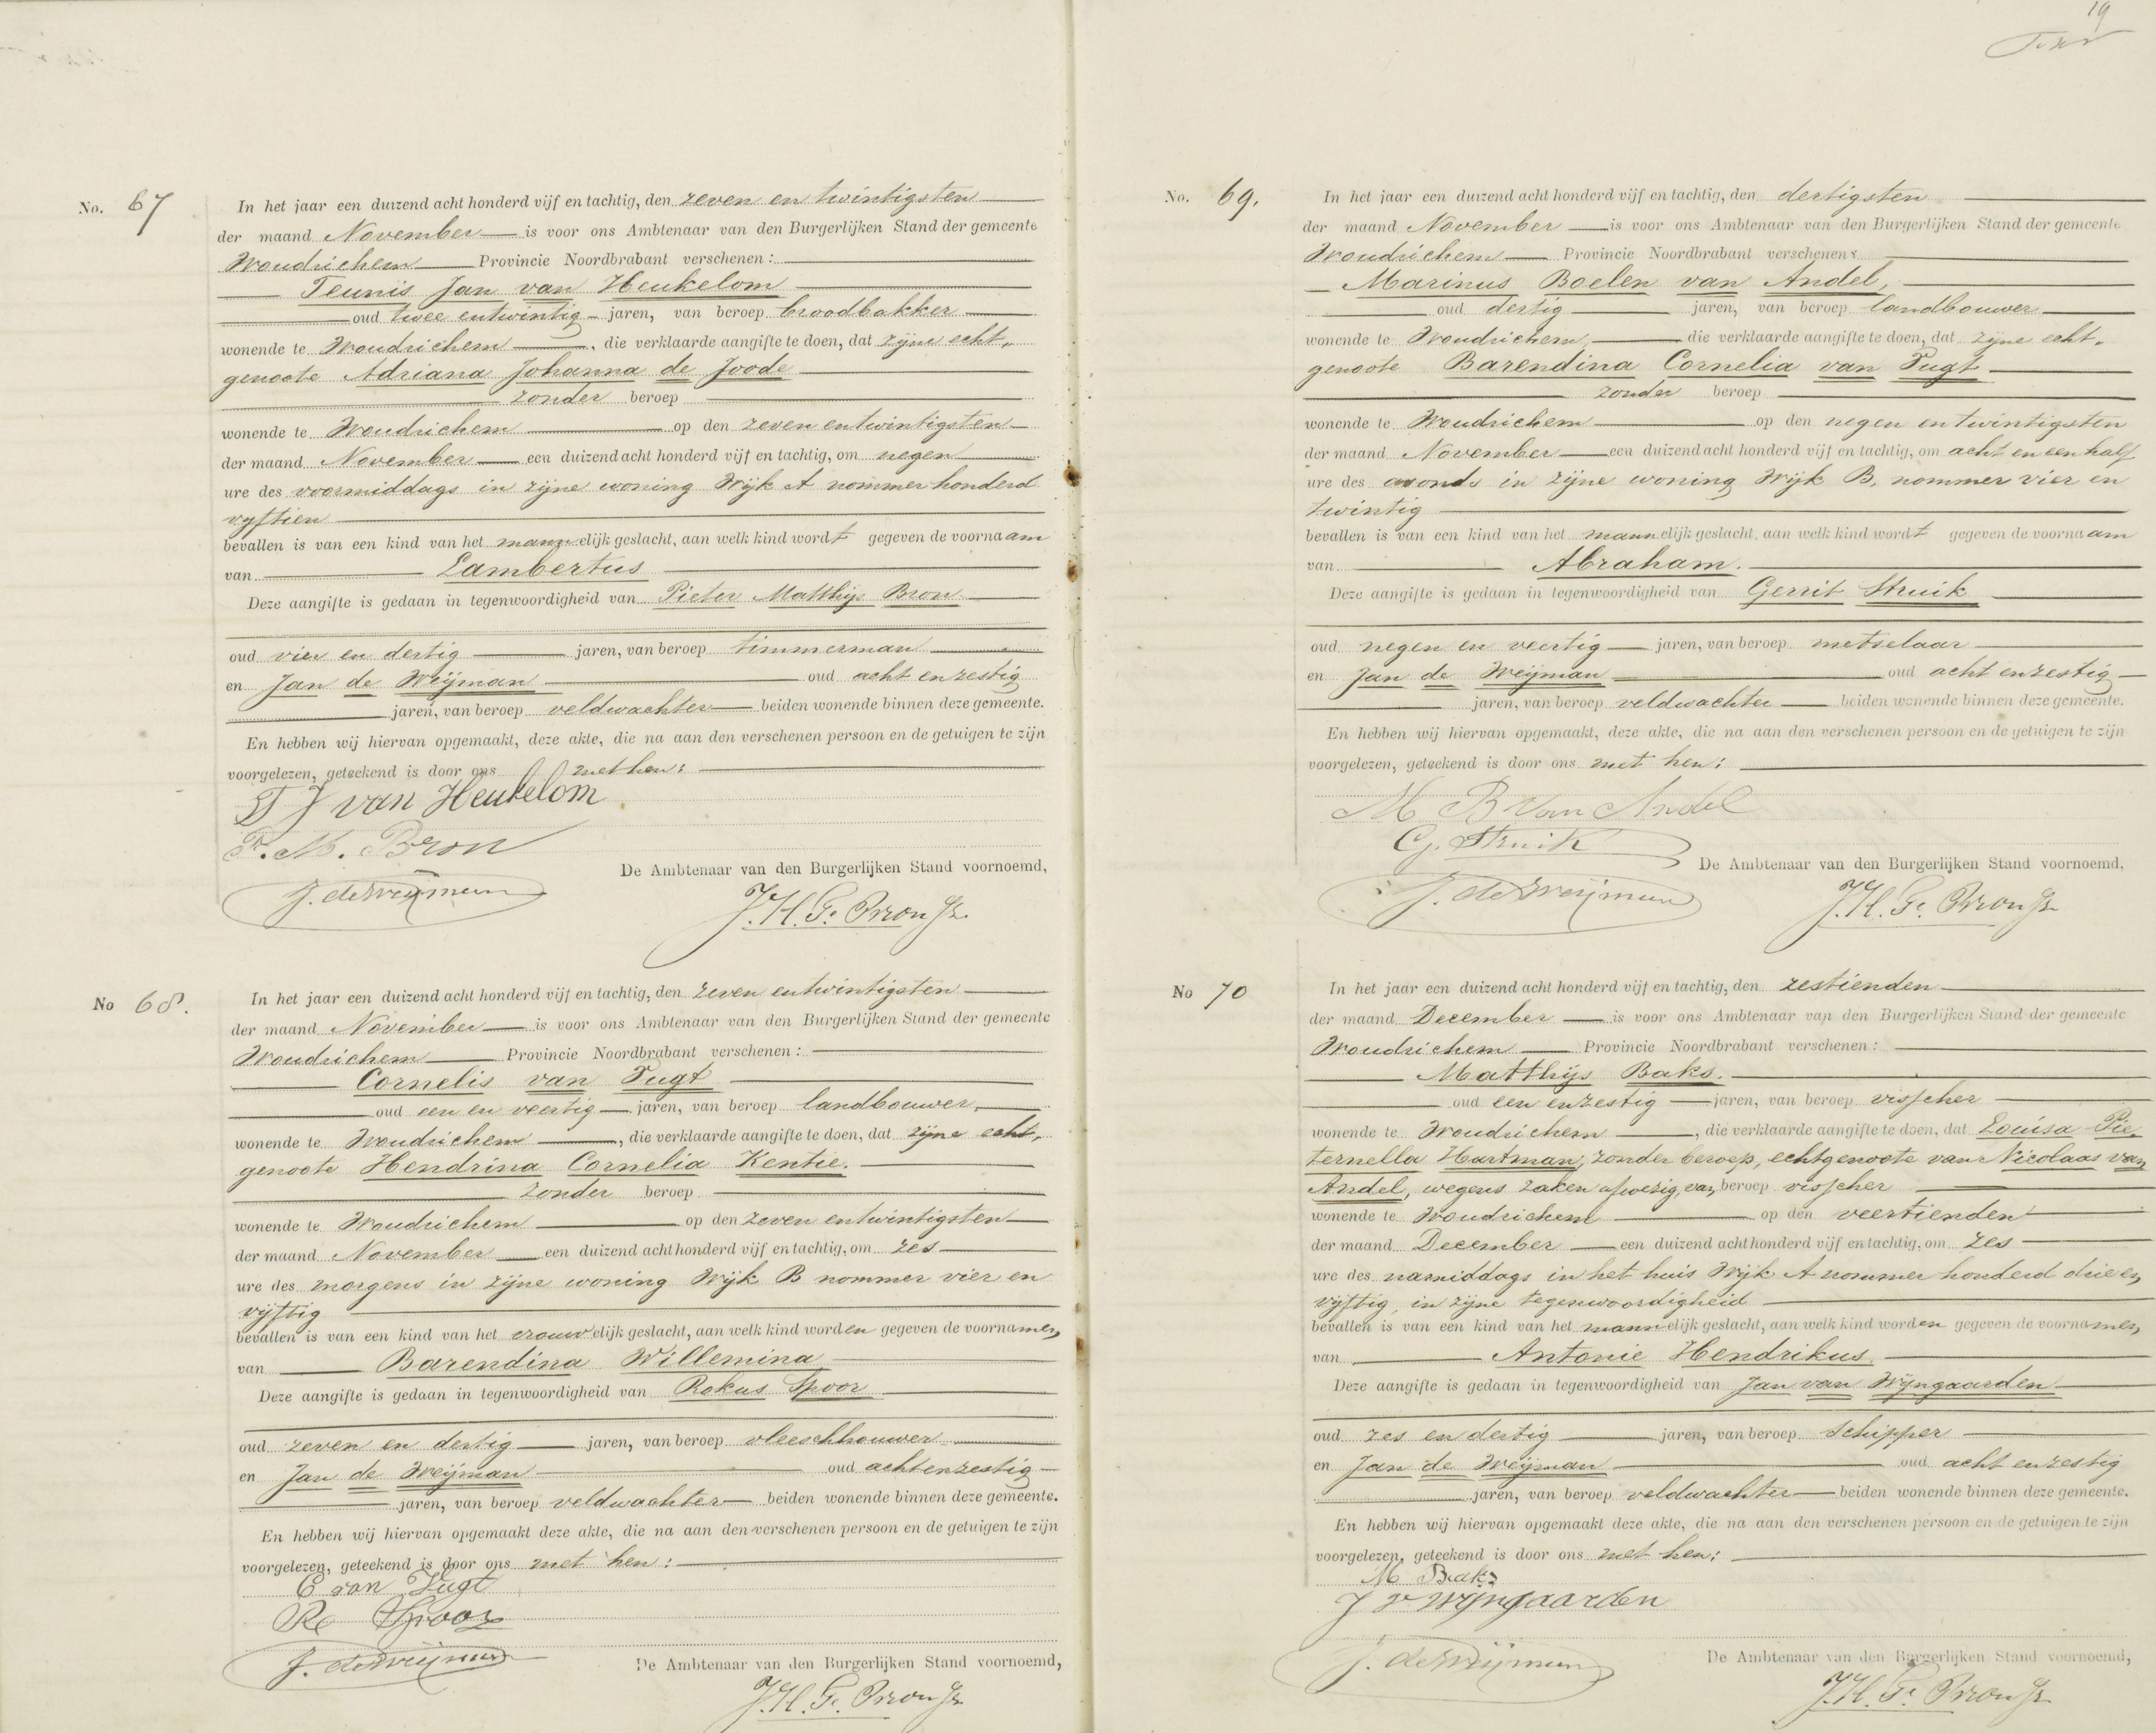 No. 67
In het jaar een duizend acht honderd vijf en tachtig, den zeven en twintigsten
der maand November is voor ons Ambtenaar van den Burgerlijken Stand der gemeente
Woudrichem Provincie Noordbrabant verschenen:
Teunis Jan van Heukelom
oud twee en twintig jaren, van beroep broodbakker
wonende te Woudrichem, die verklaarde aangifte te doen, dat zijne echt-
genoote Adriana Johanna de Joode
zonder beroep
wonende te Woudrichem op den zeven en twintigsten
der maand November een duizend acht honderd vijf en tachtig, om negen
ure des voormiddags in zijne woning Wijk A nommer honderd
vyftien
bevallen is van een kind van het mannelijk geslacht, aan welk kind wordt gegeven de voornaam
van Lambertus
Deze aangifte is gedaan in tegenwoordigheid van Pieter Matthijs Bron
oud vier en dertig jaren, van beroep timmerman
en Jan de Weijman oud acht en zestig
jaren, van beroep veldwachter beiden wonende binnen deze gemeente.
En hebben wij hiervan opgemaakt, deze akte, die na aan den verschenen persoon en de getuigen te zijn
voorgelezen, geteekend is door ons met hen:
T J van Heukelom
P. M. Bron
De Ambtenaar van den Burgerlijken Stand voornoemd,
J. de Weijman
J.H.G. Bron Jr.
No 68.
In het jaar een duizend acht honderd vijf en tachtig, den zeven en twintigsten
der maand November is voor ons Ambtenaar van den Burgerlijken Stand der gemeente
Woudrichem Provincie Noordbrabant verschenen:
Cornelis van Tugt
oud een en veertig jaren, van beroep landbouwer,
wonende te Woudrichem, die verklaarde aangifte te doen, dat zijne echt-
genoote Hendrina Cornelia Kentie.
zonder beroep
wonende te Woudrichem op den zeven en twintigsten
der maand November een duizend acht honderd vijf en tachtig, om zes
ure des morgens in zijne woning Wijk B nommer vier en
vijftig
bevallen is van een kind van het vrouwelijk geslacht, aan welk kind worden gegeven de voornamen
van Barendina Willemina
Deze aangifte is gedaan in tegenwoordigheid van Rokus Spoor
oud zeven en dertig jaren, van beroep vleeschhouwer
en Jan de Weijman oud acht en zestig
jaren, van beroep veldwachter beiden wonende binnen deze gemeente.
En hebben wij hiervan opgemaakt deze akte, die na aan den verschenen persoon en de getuigen te zijn
voorgelezen, geteekend is door ons met hen:
C van Tugt
R Spoor
J. de Weijman
De Ambtenaar van den Burgerlijken Stand voornoemd,
J.H.G. Bron Jr.
19
No. 69.
In het jaar een duizend acht honderd vijf en tachtig, den dertigsten
der maand November is voor ons Ambtenaar van den Burgerlijken Stand der gemeente
Woudrichem Provincie Noordbrabant verschenen:
Marinus Boelen van Andel,
oud dertig jaren, van beroep landbouwer
wonende te Woudrichem, die verklaarde aangifte te doen, dat zijne echt-
genoote Barendina Cornelia van Tugt
zonder beroep
wonende te Woudrichem op den negen en twintigsten
der maand November een duizend acht honderd vijf en tachtig, om acht en een half
ure des avonds in zijne woning Wijk B, nommer vier en
twintig
bevallen is van een kind van het mannelijk geslacht, aan welk kind wordt gegeven de voornaam
van Abraham.
Deze aangifte is gedaan in tegenwoordigheid van Gerrit Struik
oud negen en veertig jaren, van beroep metselaar
en Jan de Weijman oud acht en zestig
jaren, van beroep veldwachter beiden wonende binnen deze gemeente.
En hebben wij hiervan opgemaakt, deze akte, die na aan den verschenen persoon en de getuigen te zijn
voorgelezen, geteekend is door ons met hen:
M B van Andel
G. Struik
De Ambtenaar van den Burgerlijken Stand voornoemd,
J. de Weijman
J.H.G. Bron Jr
No 70
In het jaar een duizend acht honderd vijf en tachtig, den zestienden
der maand December is voor ons Ambtenaar van den Burgerlijken Stand der gemeente
Woudrichem Provincie Noordbrabant verschenen:
Matthijs Baks.
oud een en zestig jaren, van beroep visscher
wonende te Woudrichem, die verklaarde aangifte te doen, dat Louisa Pie-
ternella Hartman, zonder beroep, echtgenoote van Nicolaas van
Andel, wegens zaken afwezig, van beroep visscher
wonende te Woudrichem op den veertienden
der maand December een duizend acht honderd vijf en tachtig, om zes
ure des namiddags in het huis Wijk A nommer honderd drie en
vijftig, in zijne tegenwoordigheid
bevallen is van een kind van het mannelijk geslacht, aan welk kind worden gegeven de voornamen
van Antonie Hendrikus.
Deze aangifte is gedaan in tegenwoordigheid van Jan van Wijngaarden
oud zes en dertig jaren, van beroep schipper
en Jan de Weijman oud acht en zestig
jaren, van beroep veldwachter beiden wonende binnen deze gemeente.
En hebben wij hiervan opgemaakt deze akte, die na aan den verschenen persoon en de getuigen te zijn
voorgelezen, geteekend is door ons met hen:
M Baks
J v Wijngaarden
J. de Weijman
De Ambtenaar van den Burgerlijken Stand voornoemd,
J.H.G. Bron Jr.